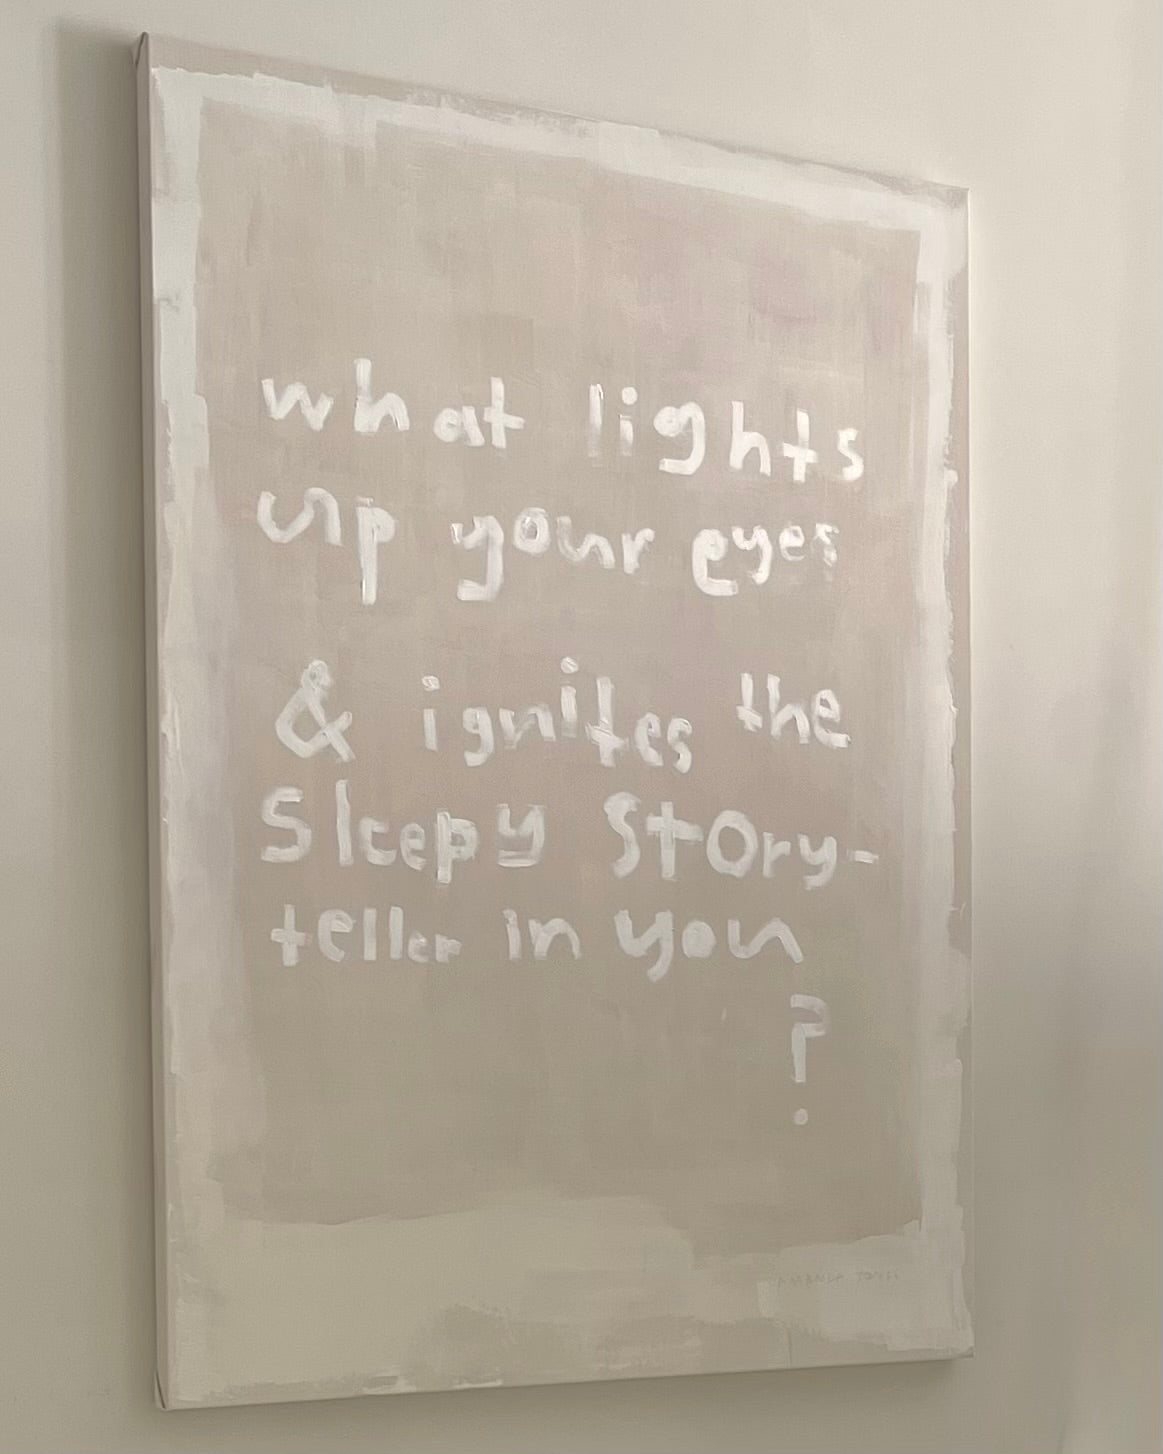 what lights
up your eyes
& ignites the
sleepy story-
teller in you
?